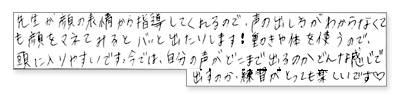 先生が顔の表情から指導してくれるので、声の出し方がわからなくて
も顔をマネてみるとパッと出たりします！動きや体を使うので、
頭に入りやすいです。今では、自分の声がどこまで出るのかどんな感じで
出すのか、練習がとっても楽しいです♡